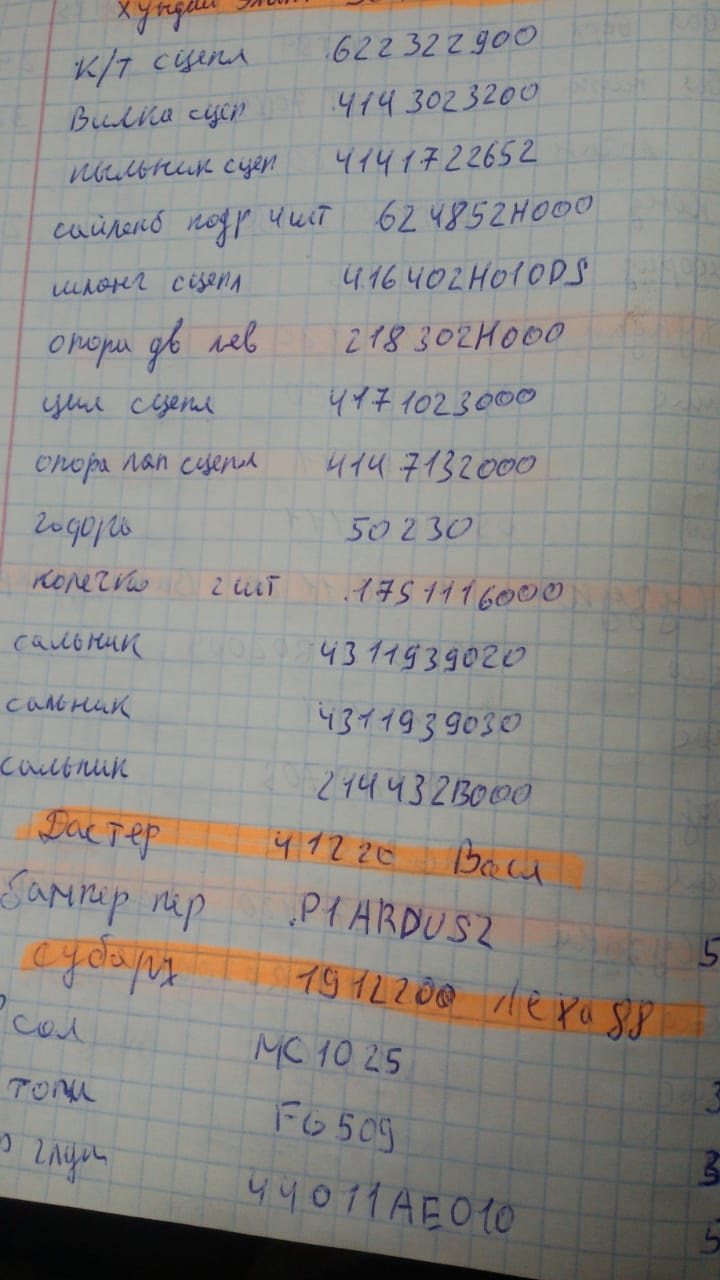 Хундай
К/т сцепл 622322900
Вилка сцеп 4143023200
пыльник сцеп 4141722652
сайленб подр 4шт 624852H000
шланг сцепл 416402H010DS
опора дв лев 218302H000
цил сцепл 4171023000
опора лап сцепл 4147132000
50230
колечко 2шт 1751116000
сальник 4311939020
сальник 4311939030
сальник 214432B000
Дастер 41220 Вася
бампер пер P1ARDUS2
5
субару 1912200 Лёха 88
сол MK1025
3
топл FG509
3
глуш 44011AE010
5